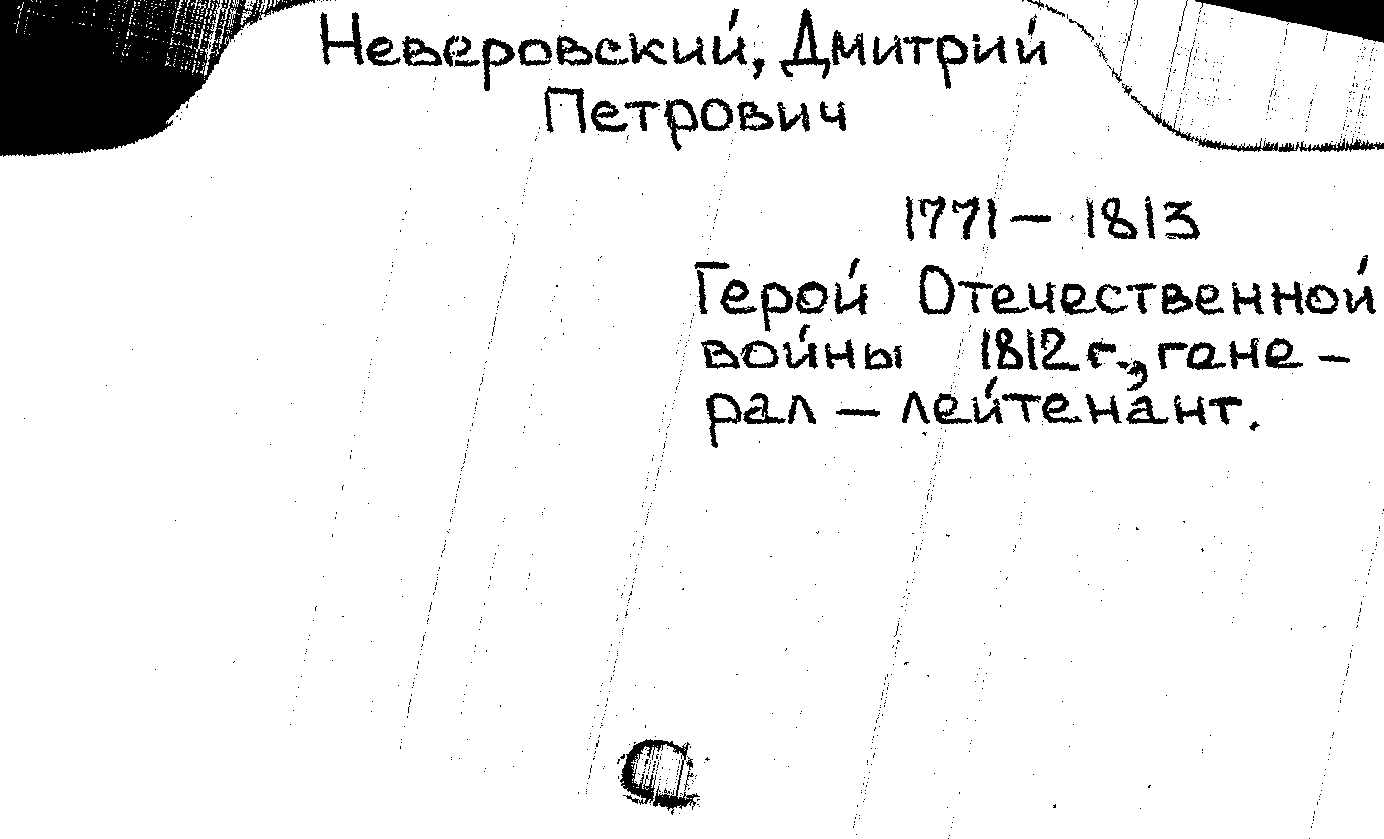 Неверовский, Дмитрий
Петрович
1771 – 1813
Герой Отечественной
войны 1812 г., гене-
рал – лейтенант.